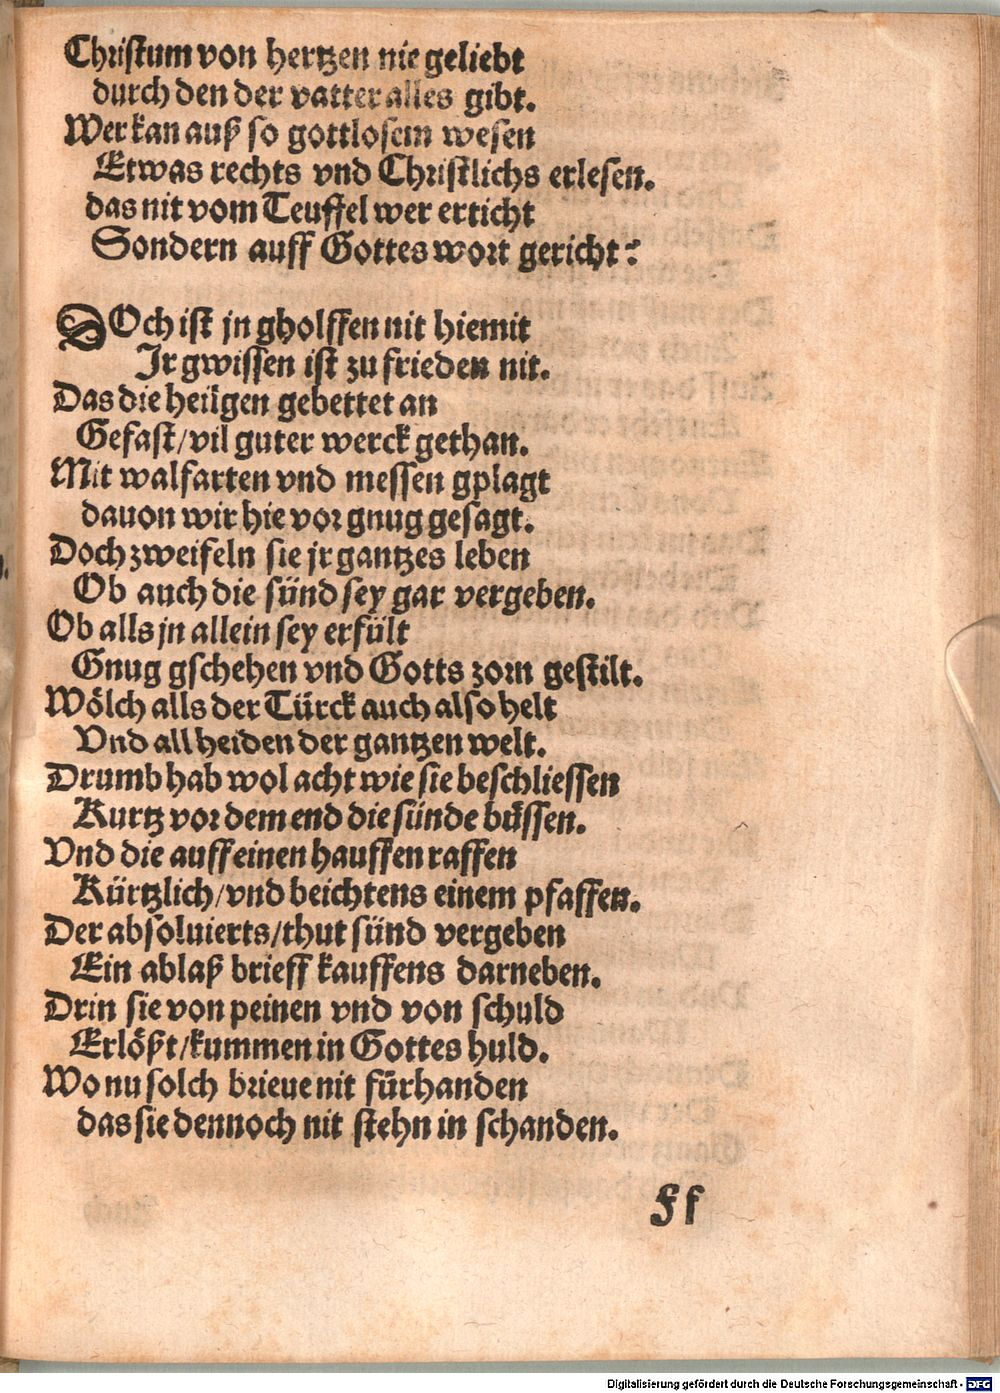 Christum von hertzen nie geliebt
durch den der vatter alles gibt.
Wer kan auß so gottlosem wesen
Etwas rechts vnd Christlichs erlesen.
das nit vom Teuffel wer erticht
Sondern auff Gottes wort gericht?
DOch ist jn gholffen nit hiemit
Ir gwissen ist zu frieden nit.
Das die heilgen gebettet an
Gefast/vil guter werck gethan.
Mit walfarten vnd messen gplagt
dauon wir hie vor gnug gesagt.
Doch zweifeln sie jr gantzes leben
Ob auch die sünd sey gar vergeben.
Ob alls jn allein sey erfült
Gnug gschehen vnd Gotts zorn gestilt.
Wölch alls der Türck auch also helt
Vnd all heiden der gantzen welt.
Drumb hab wol acht wie sie beschliessen
Kurtz vor dem end die sünde büssen.
Vnd die auff einen hauffen raffen
Kürtzlich/vnd beichtens einem pfaffen.
Der absoluierts/thut sünd vergeben
Ein ablaß brieff kauffens darneben.
Drin sie von peinen vnd von schuld
Erlößt/kummen in Gottes huld.
Wo nu solch brieue nit fürhanden
das sie dennoch nit stehn in schanden.
Ff
Digitalisierung gefördert durch die Deutsche Forschungsgemeinschaft - DFG